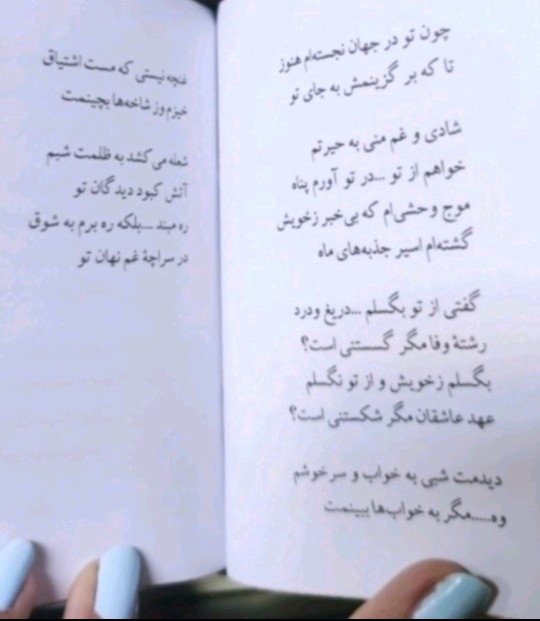 چون تو در جهان نجسته‌ام هنوز
تا که بر گزینمش به جای تو
شادی و غم منی به حیرتم
خواهم از تو ...در تو آورم پناه
موج وحشی‌ام که بی‌خبر ز خویش
گشته‌ام اسیر جذبه‌های ماه
گفتی از تو بگسلم ...دریغ و درد
رشتهٔ وفا مگر گسستنی است؟
بگسلم ز خویش و از تو نگسلم
عهد عاشقان مگر شکستنی است؟
دیدمت شبی به خواب و سرخوشم
وه.....مگر به خواب‌ها ببینمت
غنچه نیستی که مست اشتیاق
خیزم وز شاخه‌ها بچینمت
شعله می کشد به ظلمت شبم
آتش کبود دیدگان تو
ره مبند ....بلکه ره برم به شوق
در سراچهٔ غم نهان تو